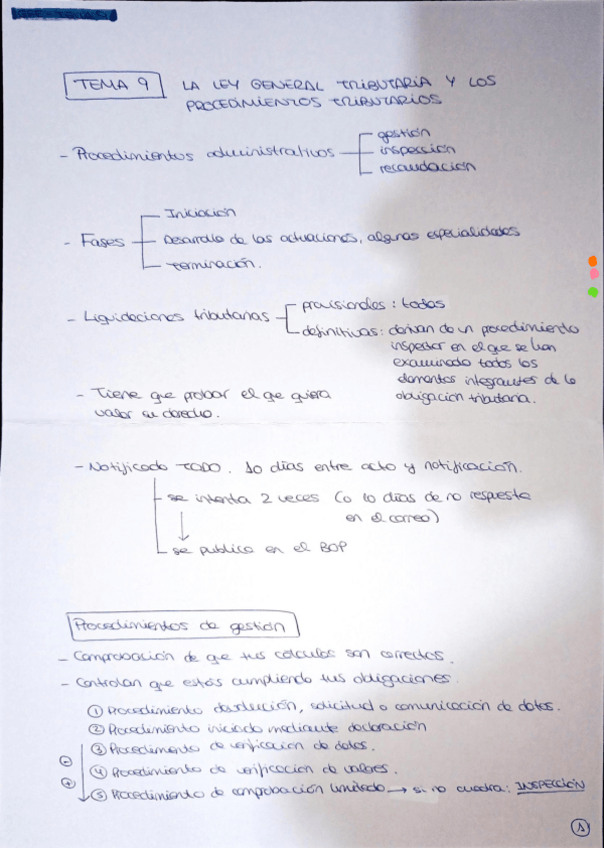 TEMA 9 LA LEY GENERAL TRIBUTARIA Y LOS
PROCEDIMIENTOS TRIBUTARIOS
- Procedimientos administrativos
gestión
inspección
recaudación
- Fases
Iniciación
Desarrollo de las actuaciones, algunas especialidades
terminación.
- Liquidaciones tributarias
provisionales: todas
definitivas: derivan de un procedimiento
inspector en el que se han
examinado todos los
elementos integrantes de la
obligación tributaria.
- Tiene que probar el que quiera
valer su derecho.
- Notificado TODO. 10 días entre acto y notificación.
se intenta 2 veces (o 10 días de no respuesta
en el correo)
se publica en el BOP
Procedimientos de gestión
- Comprobación de que tus cálculos son correctos.
- Controlan que estás cumpliendo tus obligaciones.
① Procedimiento devolución, solicitud o comunicación de datos.
② Procedimiento iniciado mediante declaración
③ Procedimiento de verificación de datos.
- ④ Procedimiento de verificación de valores.
+ ⑤ Procedimiento de comprobación limitada → si no cuadra: INSPECCIÓN
1